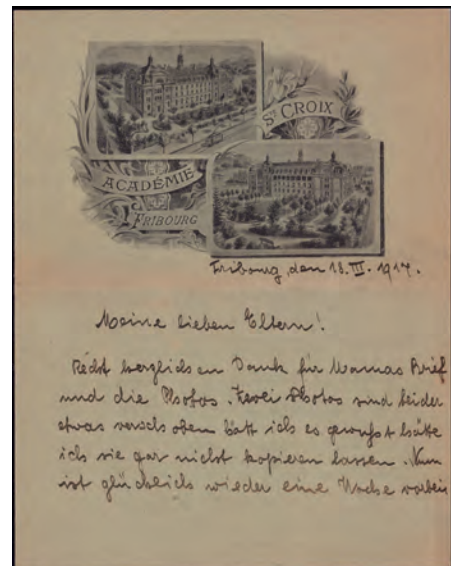 St CROIX
ACADÉMIE
FRIBOURG
Fribourg, den 18. III. 1917.
Meine lieben Eltern!
Recht herzlichen Dank für Mamas Brief
und die Photos. Zwei Photos sind leider
etwas verschoben hätt ich es gewußt hätte
ich sie gar nicht kopieren lassen. Nun
ist glücklich wieder eine Woche vorbei